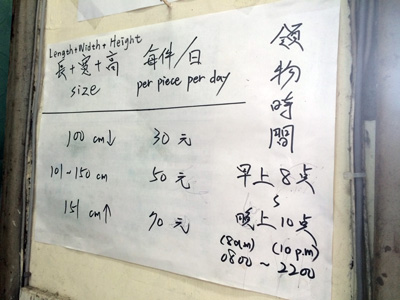 Length+Width+Height
長+寬+高
size
每件/日
per piece per day
100 cm↓ 30元
101~150 cm 50元
151 cm↑ 70元
領物時間
早上8点
~
晚上10点
(8am) (10p.m)
0800~2200